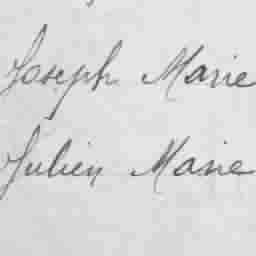 Joseph Marie
Julien Marie